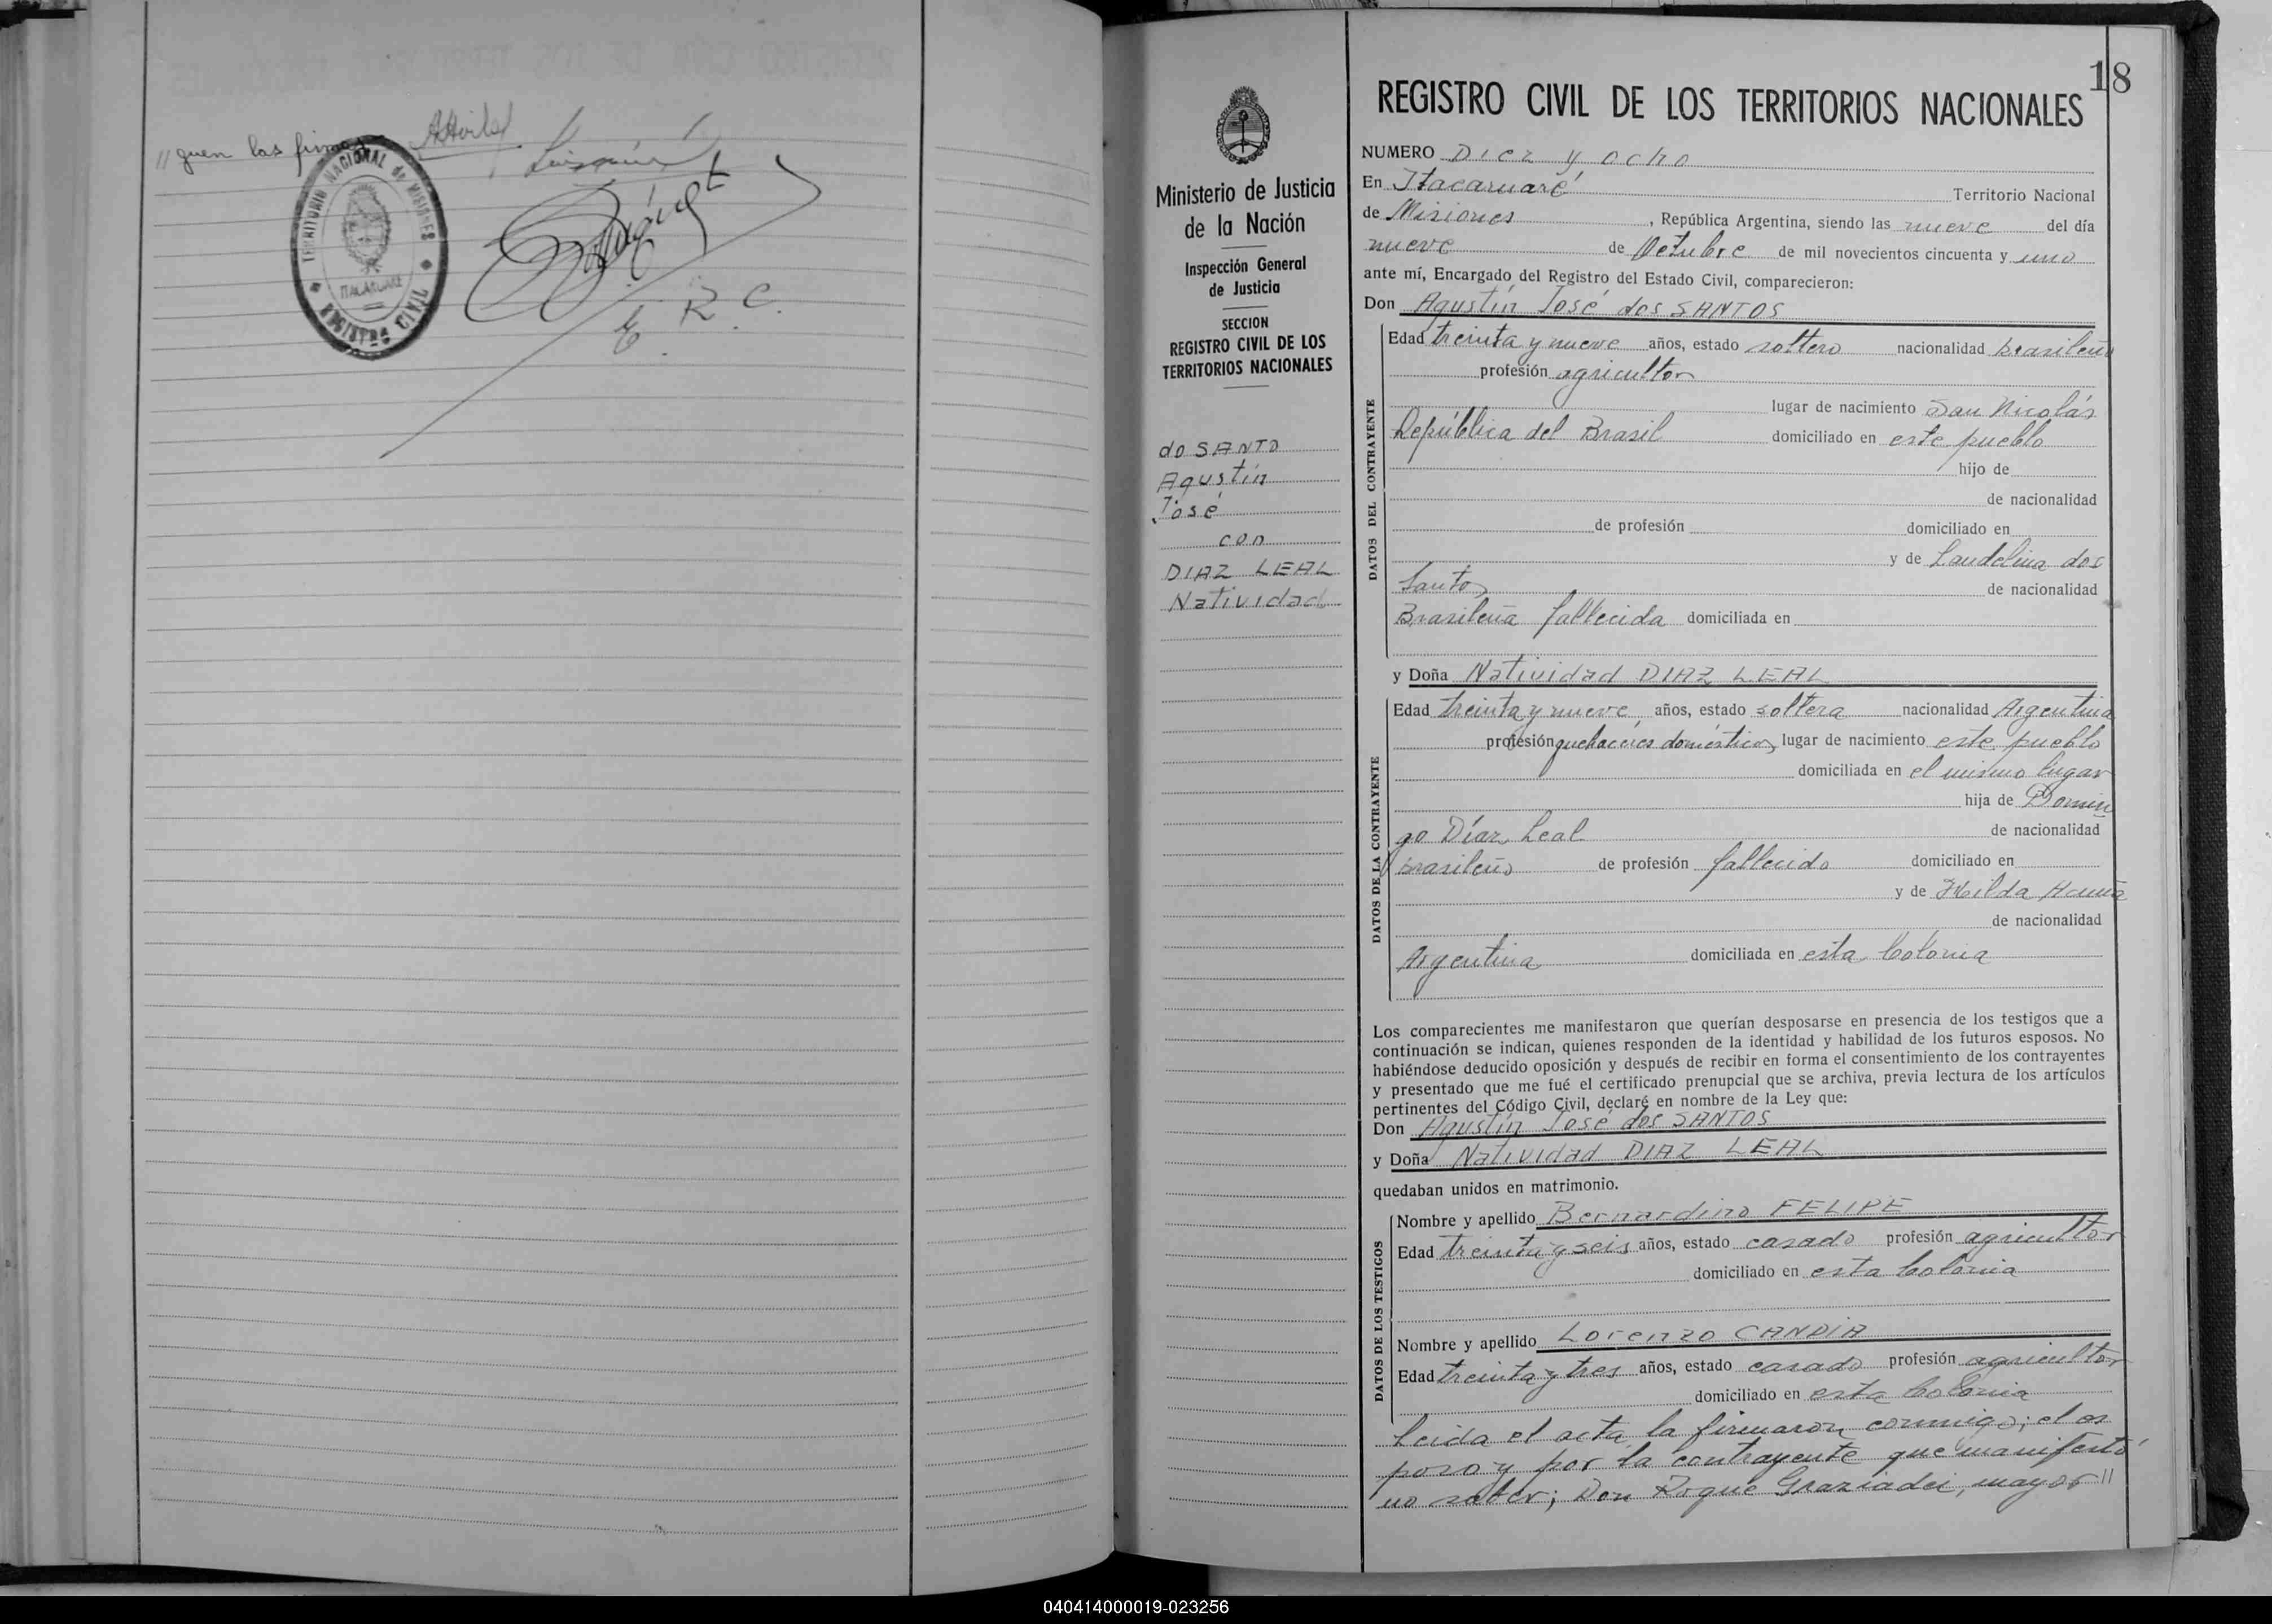 // guen las firmas
TERRITORIO NACIONAL de MISIONES
ITACARUARE
REGISTRO CIVIL
E. R. C.
18
Ministerio de Justicia
de la Nación
Inspección General
de Justicia
SECCION
REGISTRO CIVIL DE LOS
TERRITORIOS NACIONALES
do SANTO
Agustín
José
con
DIAZ LEAL
Natividad
REGISTRO CIVIL DE LOS TERRITORIOS NACIONALES
NUMERO Diez y ocho
En Itacaruaré Territorio Nacional
de Misiones, República Argentina, siendo las nueve del día
nueve de Octubre de mil novecientos cincuenta y uno
ante mí, Encargado del Registro del Estado Civil, comparecieron:
Don Agustín José dos SANTOS
DATOS DEL CONTRAYENTE
Edad treinta y nueve años, estado soltero nacionalidad brasileño
profesión agricultor
lugar de nacimiento San Nicolás
República del Brasil domiciliado en este pueblo
hijo de
de nacionalidad
de profesión domiciliado en
y de Laudelina dos
Santos de nacionalidad
Brasileña fallecida domiciliada en
y Doña Natividad DIAZ LEAL
DATOS DE LA CONTRAYENTE
Edad treinta y nueve años, estado soltera nacionalidad Argentina
profesión quehaceres domésticos lugar de nacimiento este pueblo
domiciliada en el mismo lugar
hija de Domin
go Díaz Leal de nacionalidad
brasileño de profesión fallecido domiciliado en
y de Hilda Acuña
de nacionalidad
Argentina domiciliada en esta Colonia
Los comparecientes me manifestaron que querían desposarse en presencia de los testigos que a
continuación se indican, quienes responden de la identidad y habilidad de los futuros esposos. No
habiéndose deducido oposición y después de recibir en forma el consentimiento de los contrayentes
y presentado que me fué el certificado prenupcial que se archiva, previa lectura de los artículos
pertinentes del Código Civil, declaré en nombre de la Ley que:
Don Agustín José dos SANTOS
y Doña Natividad DIAZ LEAL
quedaban unidos en matrimonio.
DATOS DE LOS TESTIGOS
Nombre y apellido Bernardino FELIPE
Edad treinta y seis años, estado casado profesión agricultor
domiciliado en esta Colonia
Nombre y apellido Lorenzo CANDIA
Edad treinta y tres años, estado casado profesión agricultor
domiciliado en esta Colonia
Leida el acta la firmaron conmigo; el es
poso y por la contrayente que manifestó
no saber; Don Roque Graziadei, mayor //
040414000019-023256